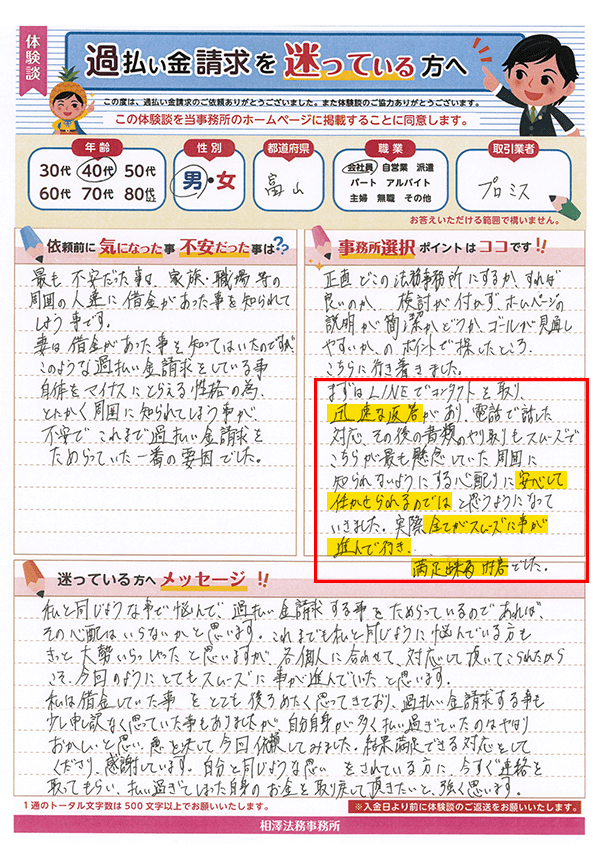 体験談
過払い金請求を迷っている方へ
この度は、過払い金請求のご依頼ありがとうございました。また体験談のご協力ありがとうございます。
この体験談を当事務所のホームページに掲載することに同意します。
年齢
30代 40代 50代
60代 70代 80代以上
性別
男・女
都道府県
富山
職業
会社員 自営業 派遣
パート アルバイト
主婦 無職 その他
取引業者
プロミス
お答えいただける範囲で構いません。
依頼前に気になった事 不安だった事は??
最も不安だった事は、家族・職場等の
周囲の人達に借金があった事を知られて
しまう事です。
妻は借金があった事を知ってはいたのですが、
このような過払い金請求をしている事
自体をマイナスにとらえる性格の為、
とにかく周囲に知られてしまう事が
不安で、これまで過払い金請求を
ためらっていた一番の要因でした。
事務所選択ポイントはココです!!
正直どこの法務事務所にするか、すれば
良いのか、検討が付かず、ホームページの
説明が簡潔かどうか、ゴールが見通し
やすいか、のポイントで探したところ、
こちらに行き着きました。
まずはLINEでコンタクトを取り、
迅速な返答があり、電話で話した
対応、その後の書類のやり取りもスムーズで
こちらが最も懸念していた周囲に
知られないようにする心配りに安心して
任かせられるのではと思うようになって
いきました。実際全てがスムーズに事が
進んで行き、
満足出来る内容でした。
迷っている方へメッセージ!!
私と同じような事で悩んで、過払い金請求する事をためらっているのであれば、
その心配はいらないかと思います。これまでも私と同じように悩んでいる方も
きっと大勢いらっしゃったと思いますが、各個人に合わせて、対応して頂いてこられたから
こそ、今回のようにとてもスムーズに事が進んでいたと思います。
私は借金していた事をとても後ろめたく思ってきており、過払い金請求する事も
少し申し訳なく思っていた事もありましたが、自分自身が多く払い過ぎていたのはやはり
おかしいと思い、意を決して今回依頼してみました。結果満足できる対応をして
くださり、感謝しています。自分と同じような思いをされている方に、今すぐ連絡を
取ってもらい、払い過ぎてしまった自身のお金を取り戻して頂きたいと、強く思います。
1通のトータル文字数は500文字以上でお願いいたします。
※入金日より前に体験談のご返送をお願いいたします。
相澤法務事務所